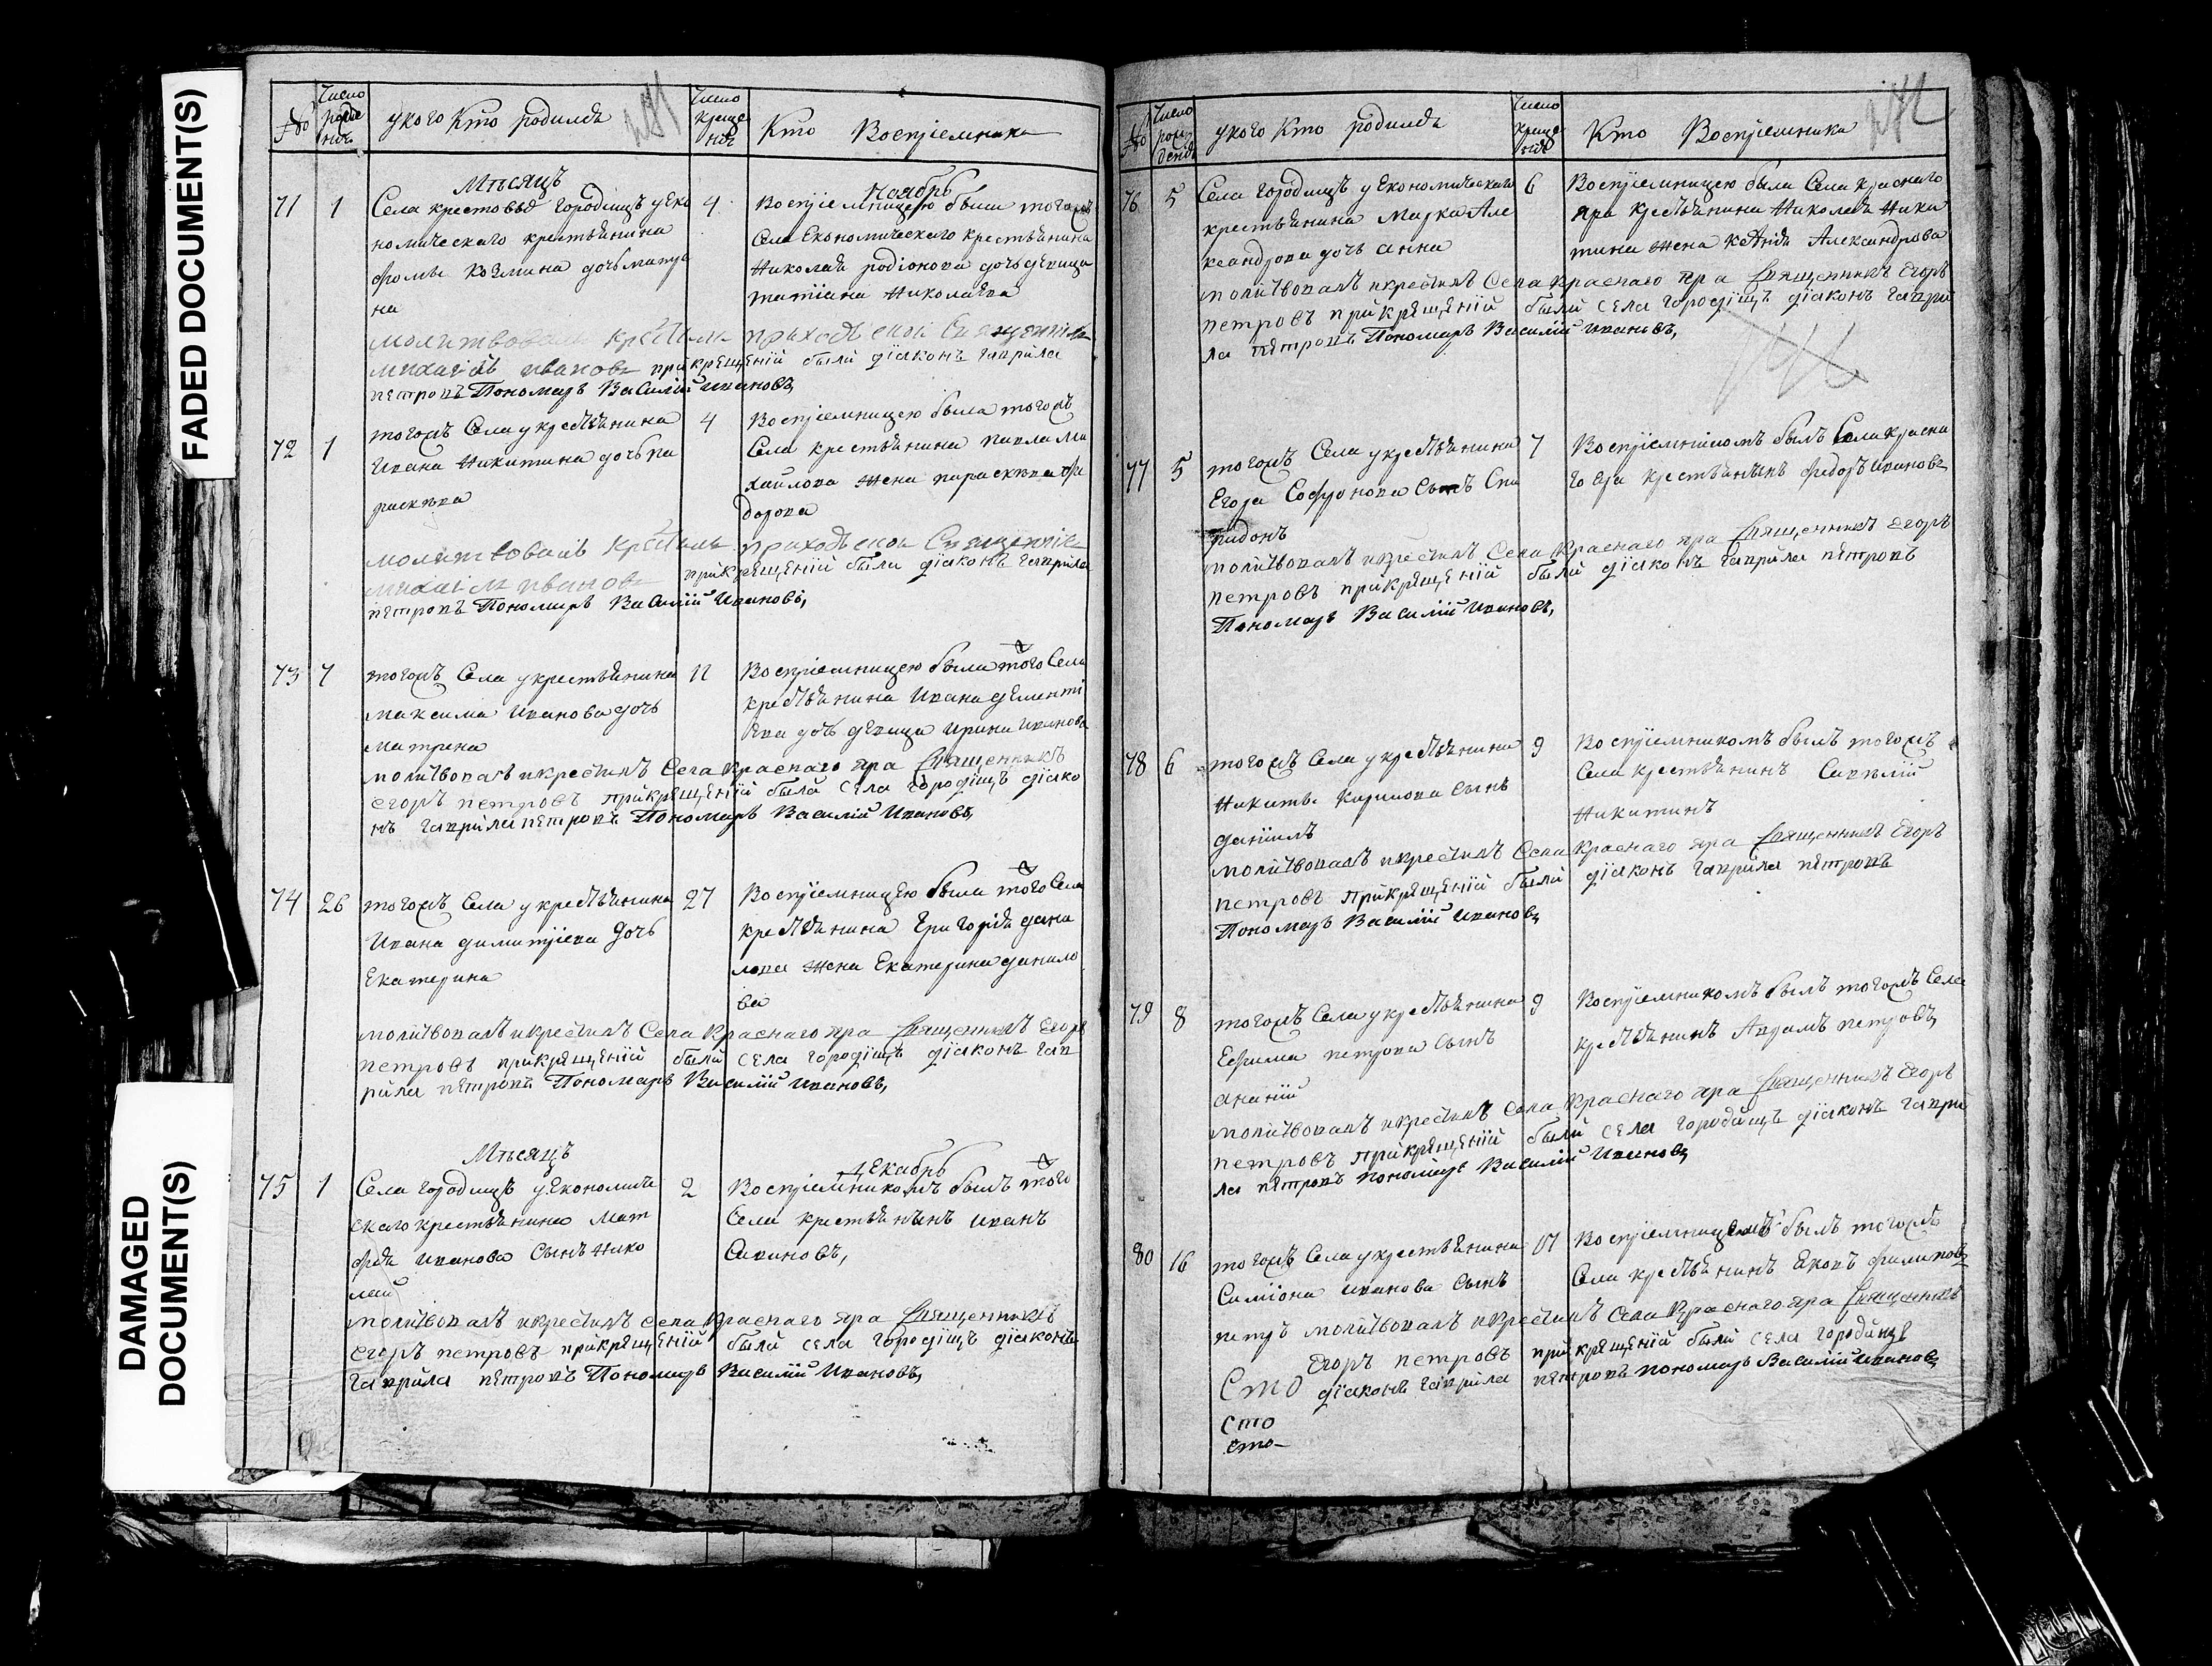 FADED DOCUMENT(S)
DAMAGED DOCUMENT(S)
№ Число рожде нія у кого кто родился Число креще нія Кто Воспріемники
Мѣсяцъ Ноябрь
71 1 Села крестовыя городищъ у Еко 4
номическаго крестьянина
фомы козмина дочь матре
на
Воспріемницею была тогожъ
Села Економическаго крестьянина
Николая родіонова дочь дѣвица
татіана Николаева
молитвовалъ крестилъ приходской Священникъ
михаилъ ивановъ прикрещеніи были діаконъ гаврила
петровъ Пономарь Василій ивановъ,
72 1 тогожъ Села у крестьянина 4
Ивана Никитина дочь па
раскева
Воспріемницею была тогожъ
Села крестьянина павла ми
хайлова жена параскева фе
дорова
молитвовалъ крестилъ приходской Священникъ
михаилъ ивановъ прикрещеніи были діаконъ гаврила
петровъ Пономарь Василій Ивановъ,
73 7 тогожъ Села у крестьянина 11
максима Иванова дочь
матрена
Воспріемницею была того Села
крестьянина Ивана дементі
ева дочь дѣвица ирина иванова
молитвовалъ и крестилъ Села краснаго яра Священникъ
егоръ петровъ прикрещеніи были села городищъ діако
нъ гаврила петровъ Пономарь Василій Ивановъ,
74 26 тогожъ Села у крестьянина 27
Ивана димитріева дочь
Екатерина
Воспріемницею была того Села
крестьянина Григорія дани
лова жена Екатерина данило
ва
молитвовалъ и крестилъ Села Краснаго яра Священникъ Егоръ
петровъ прикрещеніи были села городищъ діаконъ гав
рила петровъ Пономарь Василій ивановъ,
Мѣсяцъ декабрь
75 1 Села городищъ у Економиче 2
скаго крестьянина мат
фея иванова Сынъ нико
лай
Воспріемникомъ былъ того
Села крестьянинъ иванъ
молитвовалъ и крестилъ села Краснаго яра Священникъ
егоръ петровъ прикрещеніи были села городищъ діаконъ
гаврила петровъ Пономарь Василій Ивановъ,
№ Число рож денія у кого кто родился Число креще нія Кто Воспріемники
76 5 Села городищъ у Економическаго 6
крестьянина марка Але
ксандрова дочь анна
Воспріемницею была Села краснаго
яра крестьянина Николая Ники
тина жена ксенія Александрова
молитвовалъ и крестилъ Села краснаго яра Священникъ Егоръ
петровъ прикрещеніи были села городищъ діаконъ гаври
ла петровъ Пономарь Василій ивановъ,
77 5 тогожъ Села у крестьянина 7
Егора Софронова Сынъ Спи
ридонъ
Воспріемникомъ былъ Села красна
го яра крестьянинъ федоръ ивановъ
молитвовалъ и крестилъ Села краснаго яра Священникъ егоръ
петровъ прикрещеніи были діаконъ гаврила петровъ
Пономарь Василій Ивановъ,
78 6 тогожъ Села у крестьянина 9
Никиты Кирилова Сынъ
даніилъ
Воспріемникомъ былъ тогожъ
Села крестьянинъ Савелій
Никитинъ
молитвовалъ и крестилъ Села краснаго яра Священникъ Егоръ
петровъ прикрещеніи были діаконъ гаврила петровъ
Пономарь Василій Ивановъ
79 8 тогожъ Села у крестьянина 9
Ефима петрова Сынъ
ананій
Воспріемникомъ былъ тогожъ Села
крестьянинъ Аврамъ петровъ,
молитвовалъ и крестилъ Села Краснаго яра Священникъ Егоръ
петровъ прикрещеніи были села городищъ діаконъ гаври
ла петровъ пономарь Василій Ивановъ
80 16 тогожъ Села у крестьянина 17
Симіона иванова Сынъ
петръ
Воспріемникомъ былъ тогожъ
Села крестьянинъ Яковъ филиповъ
молитвовалъ и крестилъ Села Краснаго яра Священникъ
Егоръ петровъ прикрещеніи были села городищъ
діаконъ гаврила петровъ пономарь Василій Ивановъ
Сто
Сто
Сто